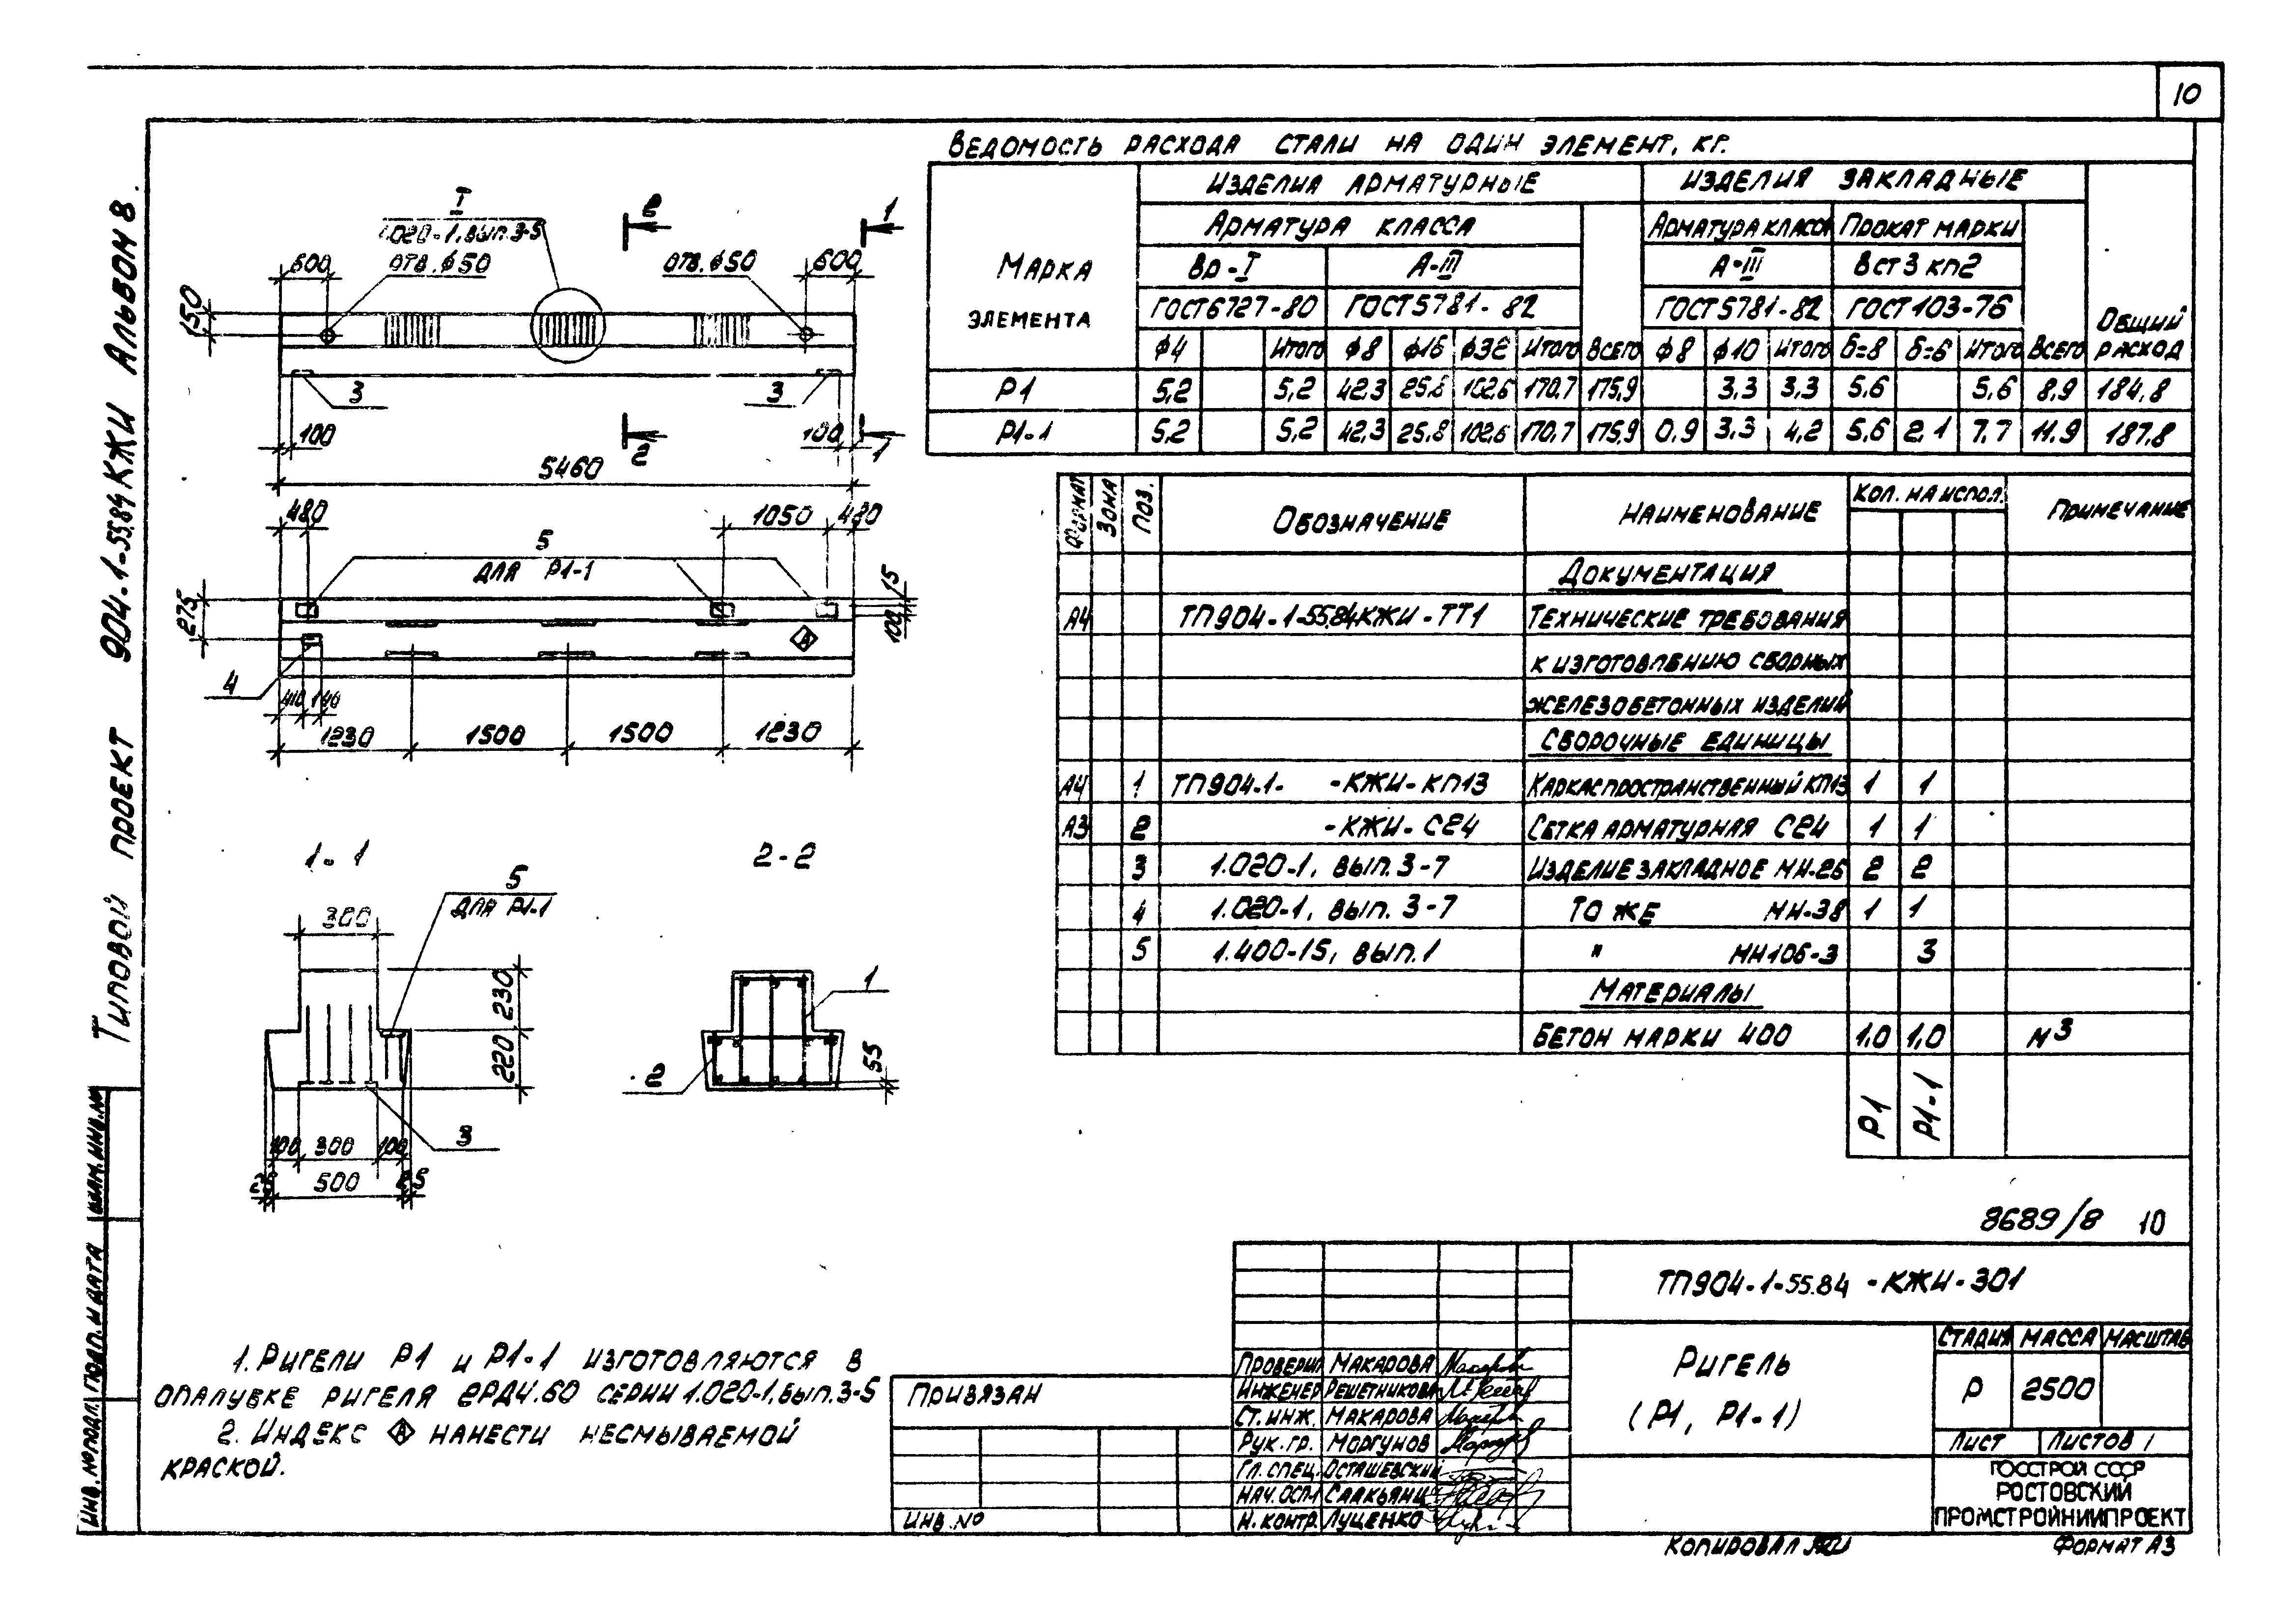 10
Типовой проект 904-1-55.84 КЖИ Альбом 8.
Ведомость расхода стали на один элемент, кг.
Марка элемента
Изделия арматурные
Изделия закладные
Общий расход
Арматура класса
Всего
Арматура класса
Прокат марки
Всего
Вр-I
А-III
А-III
Вст3 кп2
ГОСТ 6727-80
ГОСТ 5781-82
ГОСТ 5781-82
ГОСТ 103-76
ф4 Итого ф8 ф16 ф36 Итого Всего ф8 ф10 Итого δ=8 δ=6 Итого Всего
Р1 5,2 5,2 42,3 25,8 102,6 170,7 175,9 3,3 3,3 5,6 5,6 8,9 184,8
Р1-1 5,2 5,2 42,3 25,8 102,6 170,7 175,9 0,9 3,3 4,2 5,6 2,1 7,7 11.9 187,8
I
1.020-1, вып. 3-5
2
1
600
отв. ф50
отв. ф50
600
150
3
3
100
100
2
1
5460
480
1050
480
5
для Р1-1
15
100
275
4
410
140
1230
1500
1500
1230
1-1
5
для Р1-1
300
230
220
3
100
300
100
25
500
25
2-2
1
2
55
Формат
Зона
Поз.
Обозначение
Наименование
Кол. на испол.
Примечание
Документация
А4 ТП904-1-55.84КЖИ-ТТ1 Технические требования
к изготовлению сборных
железобетонных изделий
Сборочные единицы
А4 1 ТП904-1- -КЖИ-КП13 Каркас пространственный КП13 1 1
А3 2 -КЖИ-С24 Сетка арматурная С24 1 1
3 1.020-1, вып. 3-7 Изделие закладное МН-26 2 2
4 1.020-1, вып. 3-7 То же МН-38 1 1
5 1.400-15, вып.1 " МН106-3 3
Материалы
Бетон марки 400 1,0 1,0 м3
Р1
Р1-1
8689/8 10
1. Ригели Р1 и Р1-1 изготовляются в
опалубке ригеля 2РД4.60 серии 1.020-1, вып.3-5
2. Индекс А нанести несмываемой
краской.
Инв. №подл.
Подп. и дата
Взам. инв.№
Привязан
Инв. №
ТП904-1-55.84 -КЖИ-301
Проверил Макарова
Инженер Решетникова
Ст. инж. Макарова
Рук. гр. Моргунов
Гл. спец. Осташевский
Нач. ОСП-1 Саакьянц
Н. контр. Луценко
Ригель
(Р1, Р1-1)
Стадия Масса Масштаб
Р 2500
Лист Листов 1
ГОССТРОЙ СССР
РОСТОВСКИЙ
ПРОМСТРОЙНИИПРОЕКТ
Копировал
Формат А3